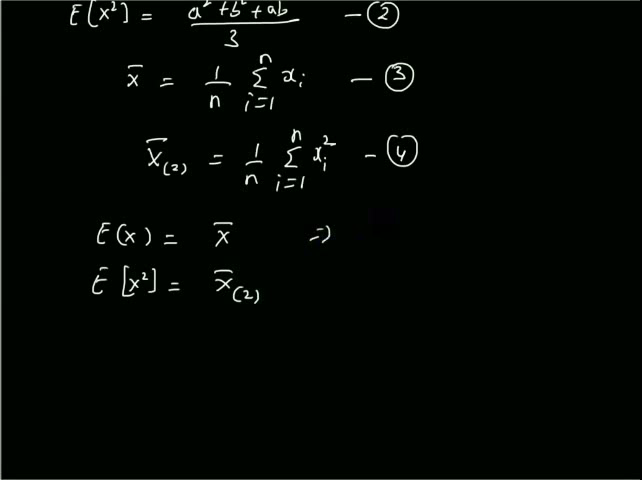 E[x²] = a²+b²+ab / 3 — ②
x̄ = 1/n Σ_{i=1}^{n} x_i — ③
x̄_(2) = 1/n Σ_{i=1}^{n} x_i² — ④
E(x) = x̄ ⇒
E[x²] = x̄_(2)